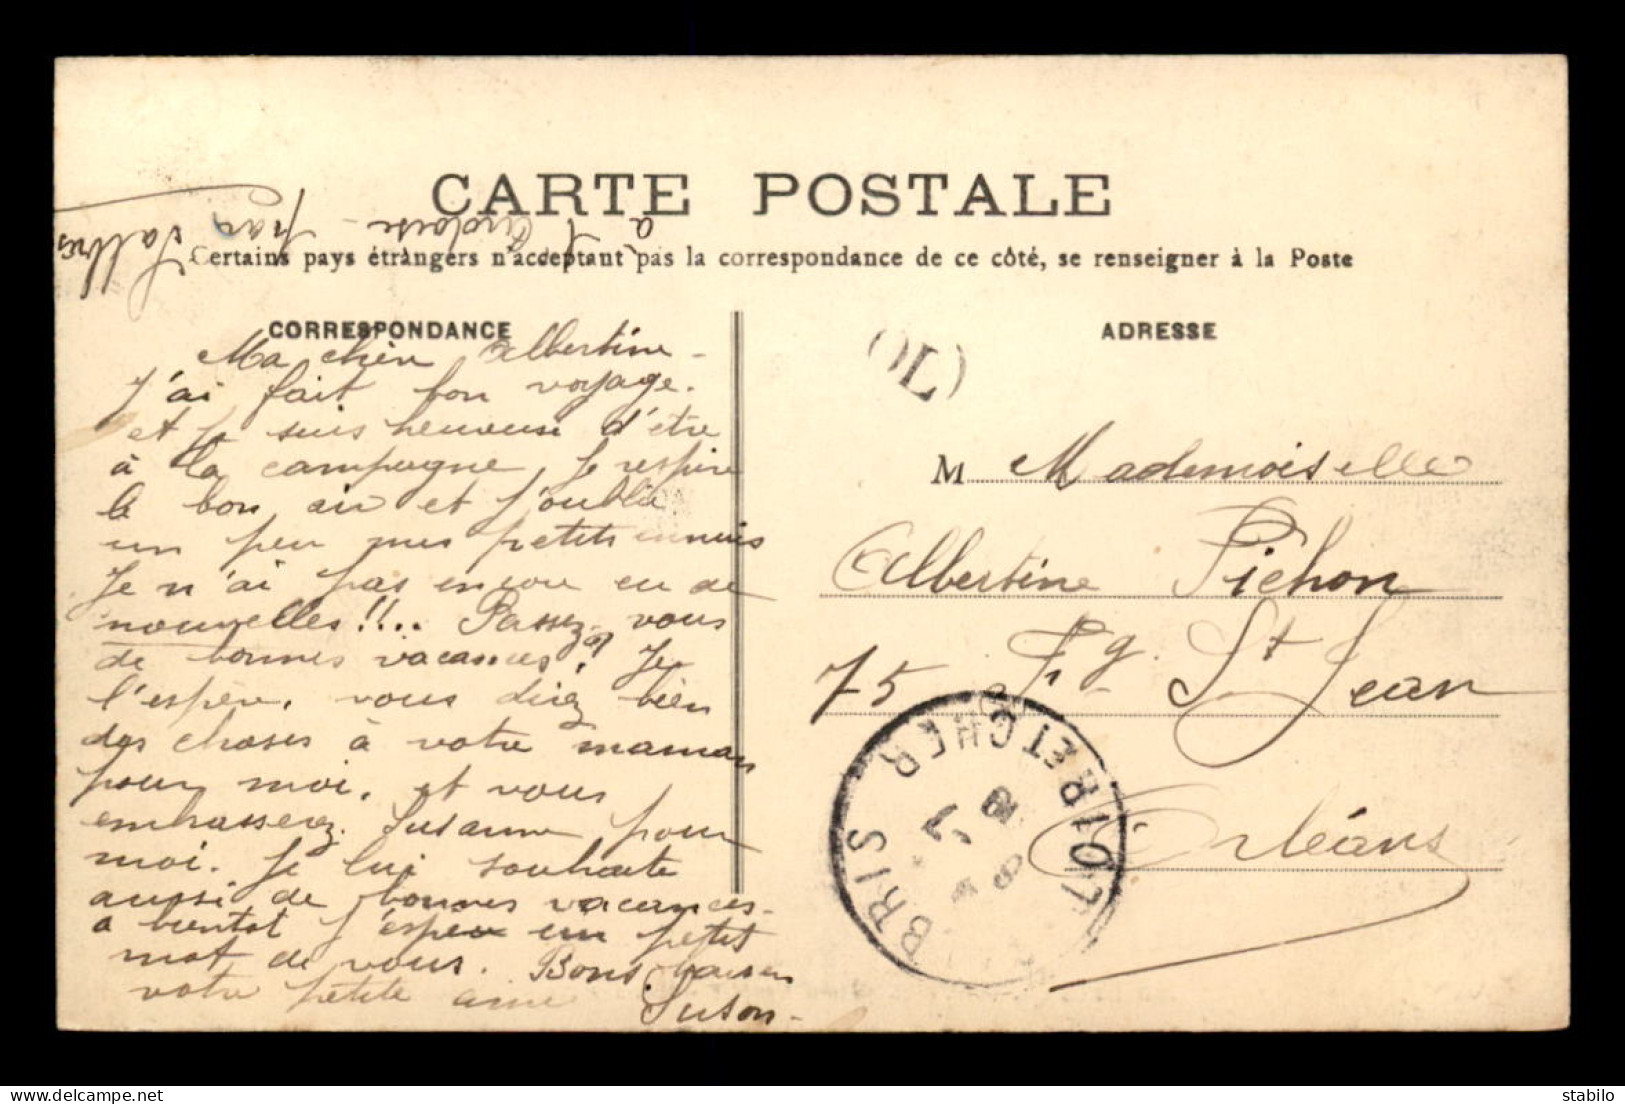 CARTE POSTALE
à l'Ardoise - par Salbris
Certains pays étrangers n'acceptent pas la correspondance de ce côté, se renseigner à la Poste
CORRESPONDANCE
Ma chère Albertine -
J'ai fait bon voyage.
et je suis heureuse d'être
à la campagne, Je respire
le bon air et j'oublie
un peu mes petits ennuis
Je n'ai pas encore eu de
nouvelles!!... Passez-vous
de bonnes vacances? Je
l'espère, vous direz bien
des choses à votre maman
pour moi, et vous
embasserez Susanne pour
moi. Je lui souhaite
aussi de bonnes vacances-
a bientot j'espère un petit
mot de vous. Bons baisers
votre petite amie
Suson-
ADRESSE
OL
M Mademoiselle
Albertine Pichon
75 Fg. St Jean
Orléans
LOIR ET CHER
BRIS